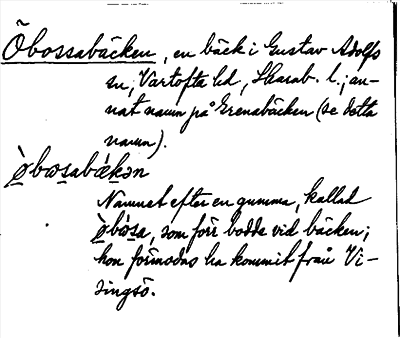 Öbossabäcken, en bäck i Gustav Adolfs
sn, Vartofta hd, Skarab. l.; an-
nat namn på Grenabäcken (se detta
namn).
ø̀bωsabǽkən
Namnet efter en gumma, kallad
ø̀bὼsa, som förr bodde vid bäcken;
hon förmodas ha kommit från Vi-
singsö.